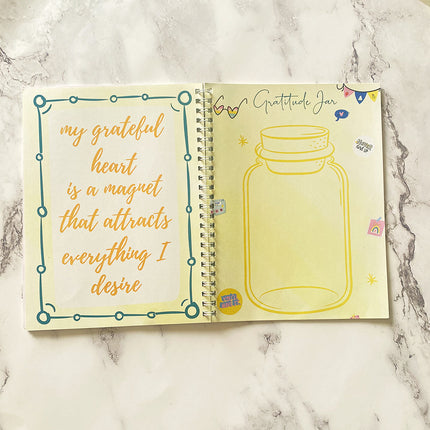 my grateful
heart
is a magnet
that attracts
everything I
desire
Gratitude Jar